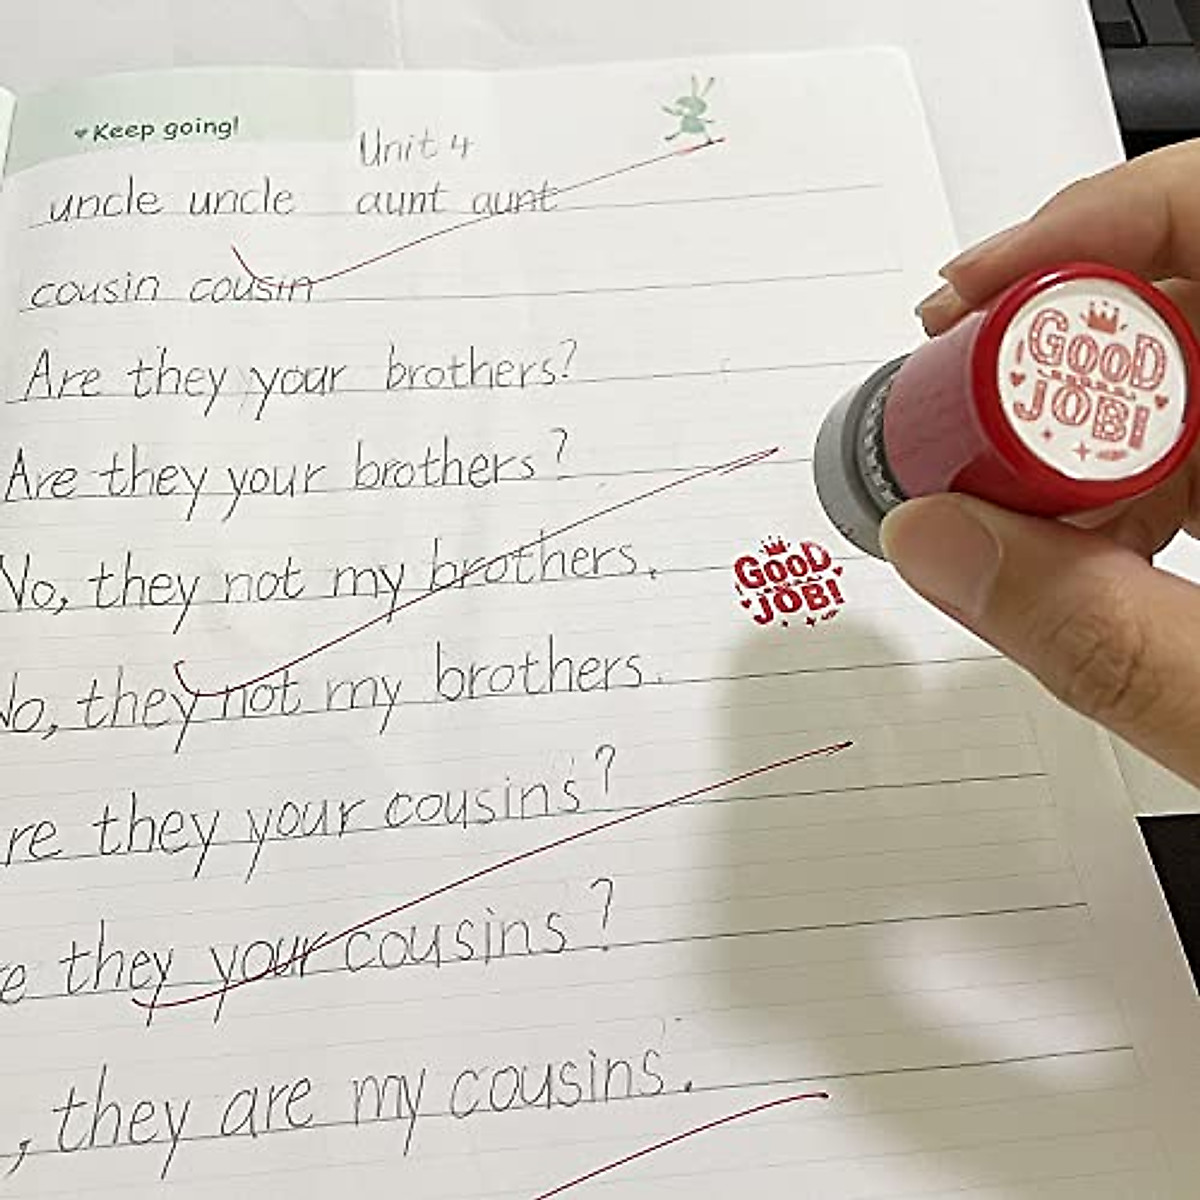 Keep going!
Unit 4
uncle uncle aunt aunt
cousin cousin
Are they your brothers?
Are they your brothers?
No, they not my brothers.
No, they not my brothers.
re they your cousins?
e they your cousins?
, they are my cousins.
GOOD
JOB!
GOOD
JOB!